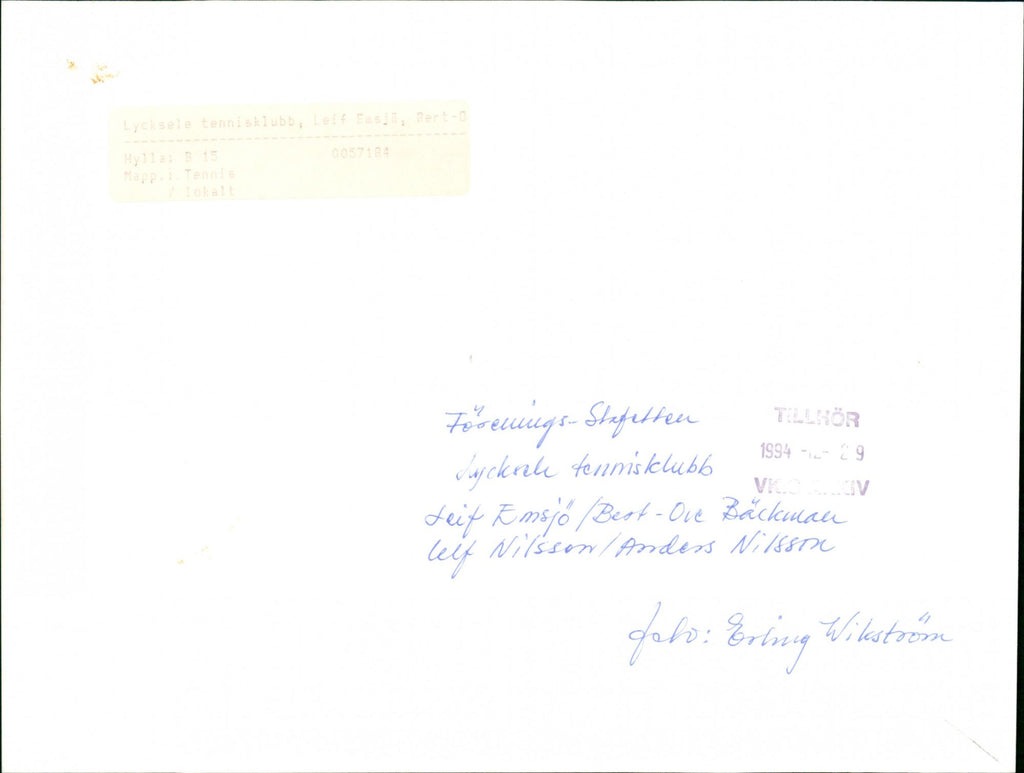 Lycksele tennisklubb, Leif Emsjö, Bert-O
Hylla: B 15 0057184
Mapp.: Tennis
/ lokalt
Förenings-Stafetten
Lycksele tennisklubb
Leif Emsjö / Bert-Ove Bäckman
Ulf Nilsson / Anders Nilsson
TILLHÖR
1994 -12- 29
VK:S ARKIV
foto: Erling Wikström